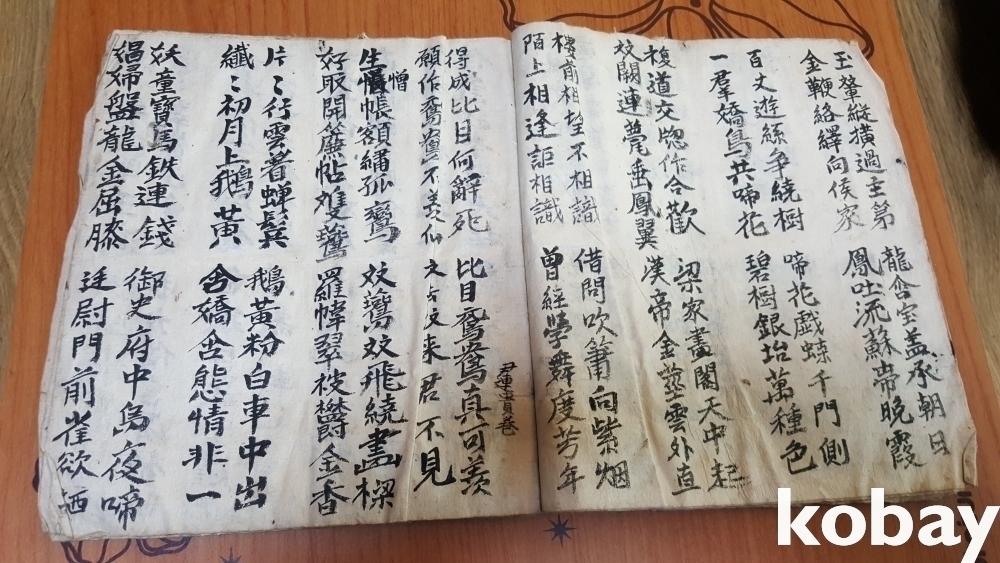 玉輦縱橫過主第
金鞭絡繹向侯家
龍含宝盖承朝日
鳳吐流蘇帶晚霞
百丈遊絲爭繞樹
一群嬌鳥共啼花
啼花戲蝶千門側
碧樹銀坮萬種色
複道交窓作合歡
双闕連甍垂鳳翼
梁家畵閣天中起
漢帝金莖雲外直
樓前相望不相諳
陌上相逢詎相識
借問吹簫向紫烟
曾經學舞度芳年
得成比目何辭死
願作鴛鴦不羨仙
比目鴛鴦真可羨
双去双來君不見
尹連貴卷
生憎帳額繡孤鸞
憎
好取開簾帖雙鷰
双鸞双飛繞畵樑
羅幃翠被欝金香
片〻行雲着蟬鬂
纖〻初月上鵝黃
鵝黃粉白車中出
含嬌含態情非一
妖童寶馬鉄連錢
娼婦盤龍金屈膝
御史府中烏夜啼
廷尉門前雀欲栖
kobay